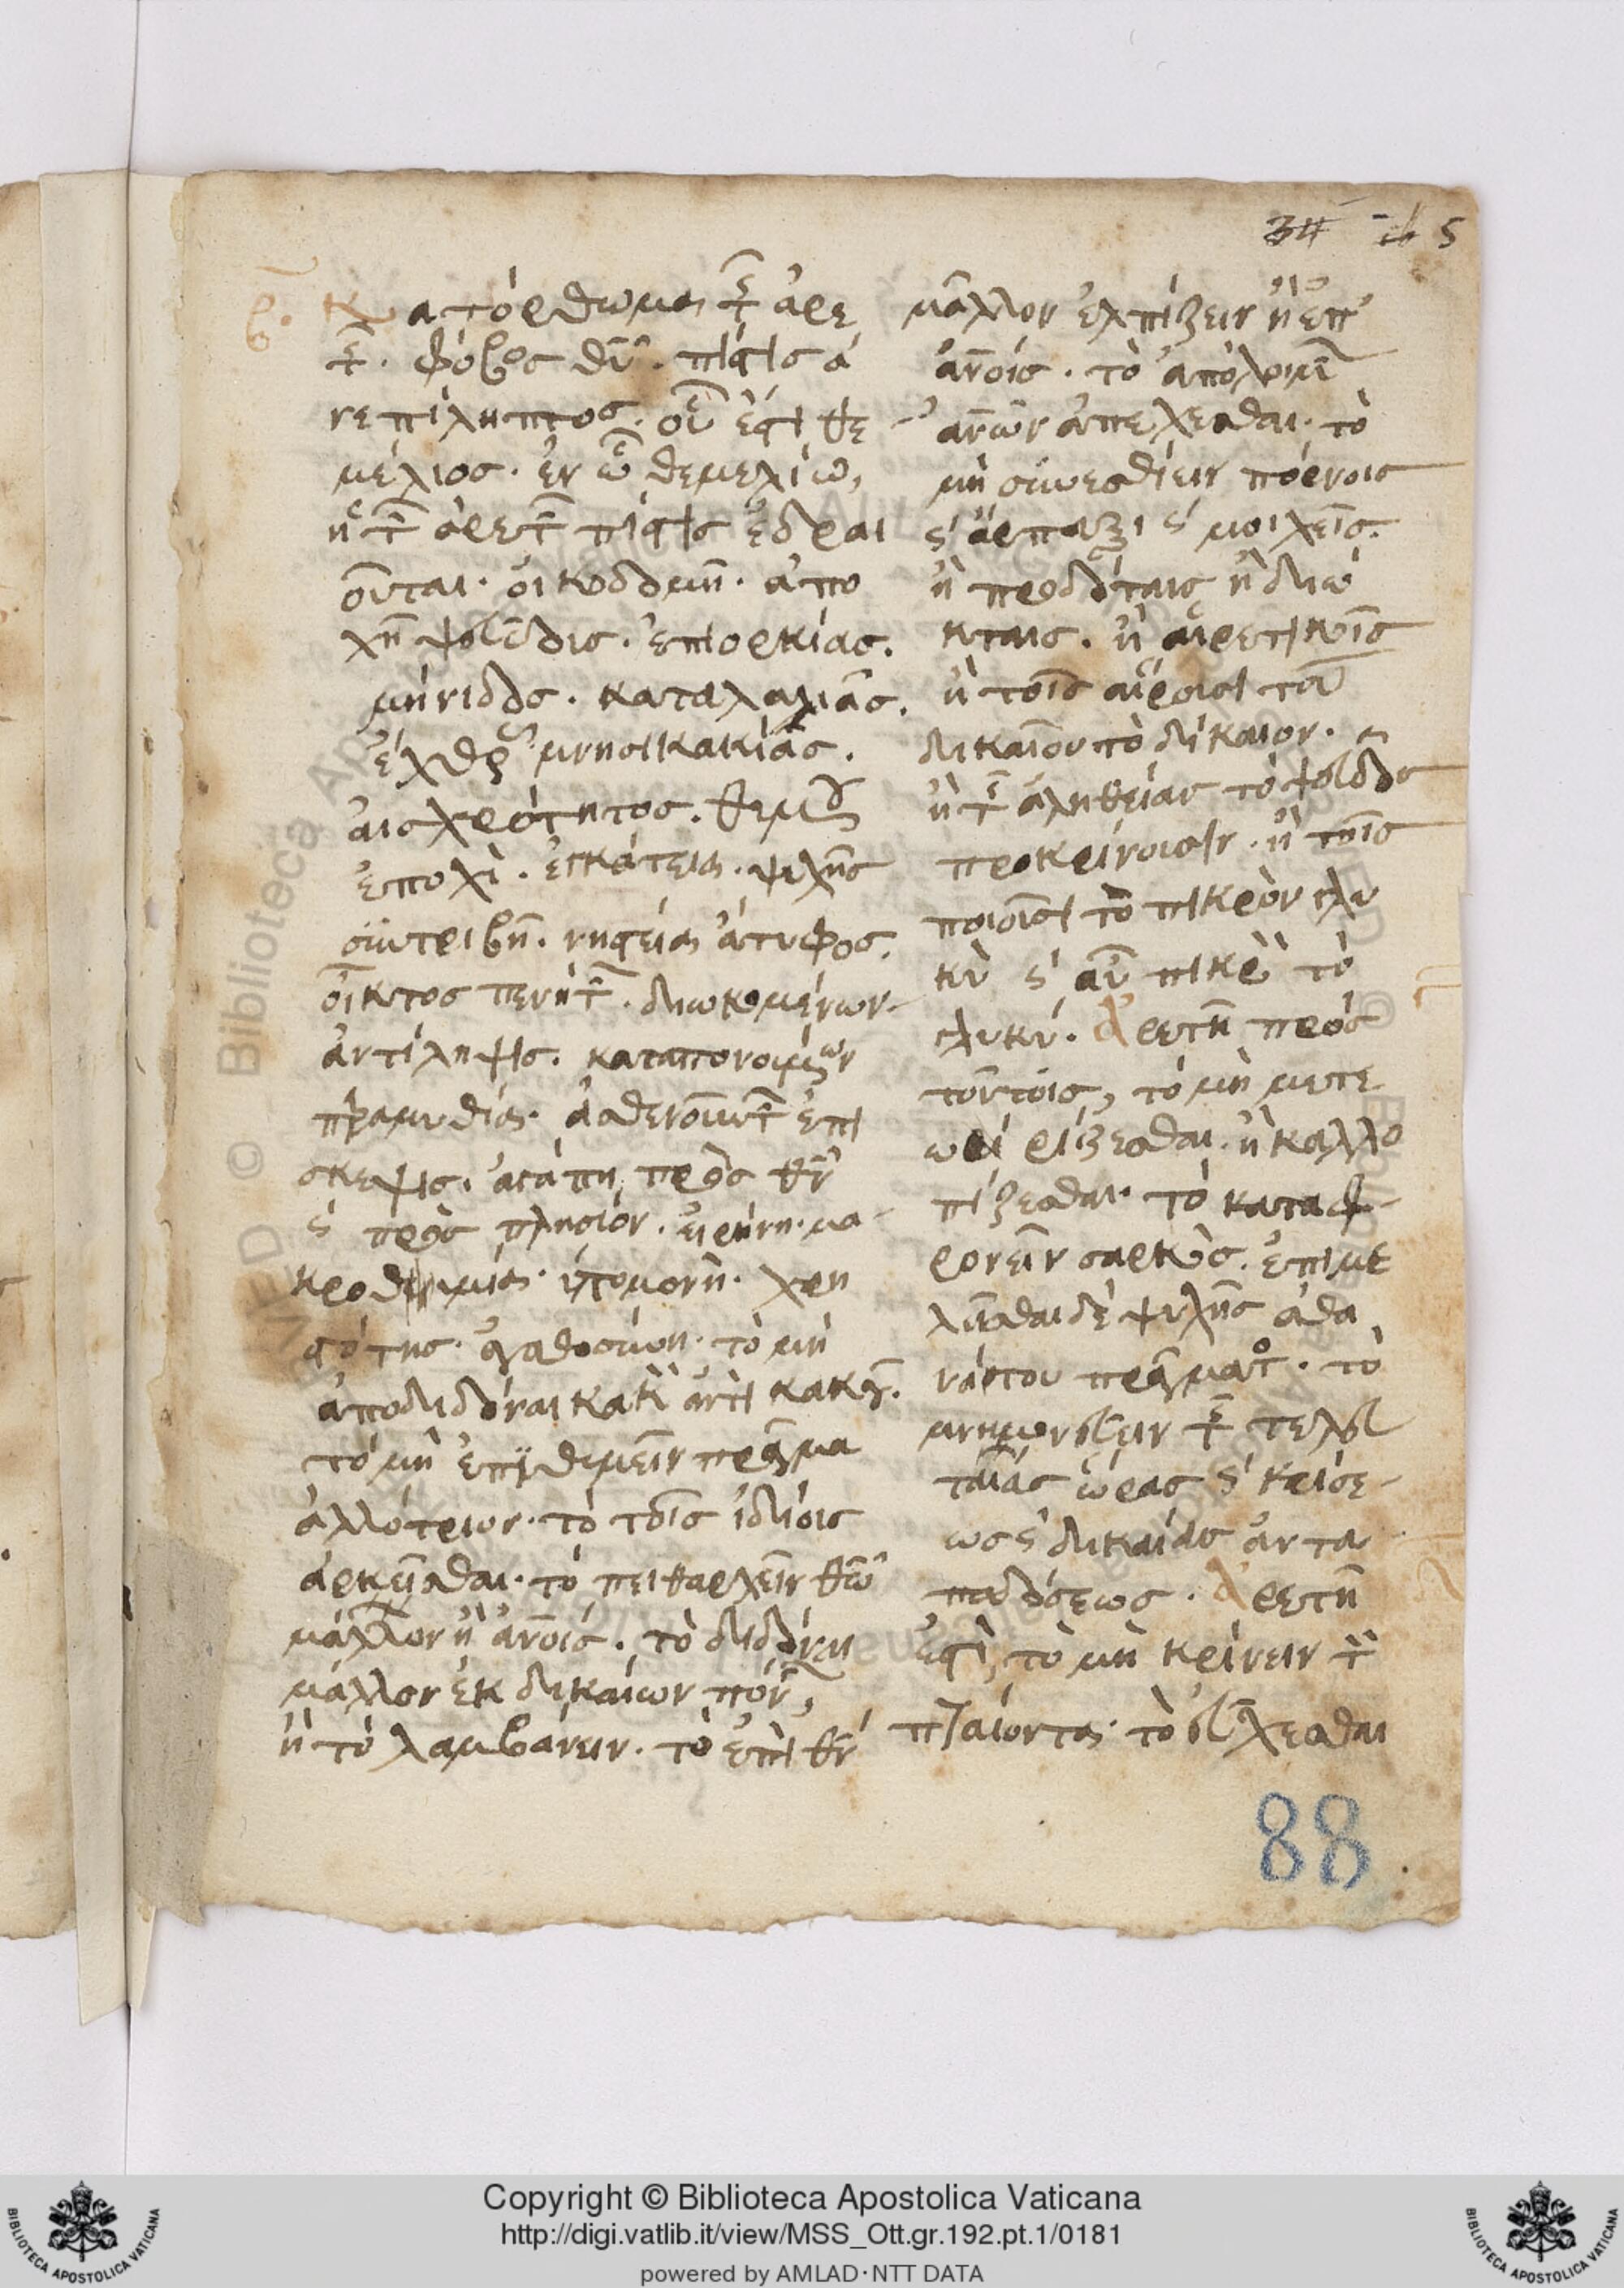 34 5
β. Κατόρθωμα τ̑ ἀρε
τ̑. φόβος θῦ. πίστις ἀ
νεπίληπτος. οὗ ἐστι θε
μέλιος. ἐν ὧ θεμελίω,
ἡ τ̑ ἀρετ̑ πίστις ἑδραι
οῦται. οἰκοδομὴ. ἀπο
χὴ ψεύδους. ἐπιορκίας.
μήνιδος. καταλαλιᾶς.
ἔχθρ μνησικακίας.
αἰσχρότητος. θυμοῦ
ἐποχὶ. ἐγκράτεια. ψυχῆς
συντριβὴ. νηστεία ἄτυφος.
οἶκτος πενήτ̑. διωκομένων
ἀντίληψις. καταπονουμ́ων
πραμυθία. ἀσθενούντ̑ ἐπί
σκεψις. ἀγάπη πρὸς θν̄
ϛ πρὸς πλησίον. εἰρήνη. μα
κροθυμία. ὑπομονὴ. χρη
στότης. ἀγαθοσύνη. τὸ μὴ
ἀποδιδόναι κακὸν ἀντὶ κακοῦ.
τὸ μὴ ἐπιθυμεῖν πρᾶγμα
ἀλλότριον. τὸ τοῖς ἰδίοις
ἀρκεῖσθαι. τὸ πειθαρχεῖν θῶ
μᾶλλον ἢ ἀνοις. τὸ διδόναι
μᾶλλον ἐκ δικαίων πόν,
ἢ τὸ λαμβάνειν. τὸ ἐπὶ θν̄
μᾶλλον ἐλπίζειν ἢ ἐπ'
ἀνοις. τὸ ἀπὸ λοιμ
ἀνων ἀπέχεσθαι. τὸ
μὴ συνεσθίειν πόρνοις
ϛ ἅρπαξι ϛ μοιχοῖς.
ἢ προδόταις ἢ διώ
κταις. ἢ αἱρετικοῖς
ἢ τοῖς αἴρουσι τοῦ
δικαίου τὸ δίκαιον.
ἢ τ̑ ἀληθείας τὸ ψεῦδος
προκρίνουσιν. ἢ τοῖς
ποιοῦσι τὸ πικρὸν γλυ
κὺ ϛ αὖ πικρὸν τὸ
γλυκύ. Ἀρετὴ πρὸς
τούτοις, τὸ μὴ μετε
ωρίζεσθαι. ἢ καλλο
πίζεσθαι. τὸ καταφ
ρονεῖν σαρκὸς. ἐπιμε
λεῖσθαι δὲ ψυχῆς ἀθα
νάτου πράγματος. τὸ
μνημονεύειν τ̑ τελευ
ταίας ὥρας ϛ κρίσε
ως ϛ δικαίας ἀντα
ποδόσεως. Ἀρετὴ
ἐστὶ, τὸ μὴ κρίνειν τὸν
πταίοντα. τὸ εὔχεσθαι
88
Copyright © Biblioteca Apostolica Vaticana
http://digi.vatlib.it/view/MSS_Ott.gr.192.pt.1/0181
powered by AMLAD·NTT DATA